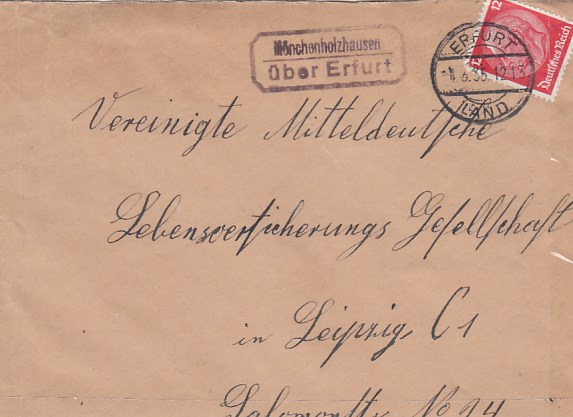 Mönchenholzhausen
über Erfurt
ERFURT
6.35.12-13
LAND
12
Deutsches Reich
Vereinigte Mitteldeutsche
Lebensversicherungs Gesellschaft
in Leipzig, C 1
No 24